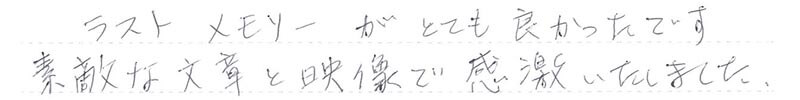 ラスト メモリー が とても 良かったです
素敵な文章と映像で 感激いたしました.